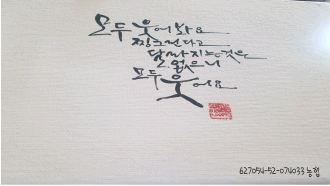 모두 웃어봐요
찡그린다고
달라지는 것은
없으니
모두 웃어요
627054-52-074033 농협